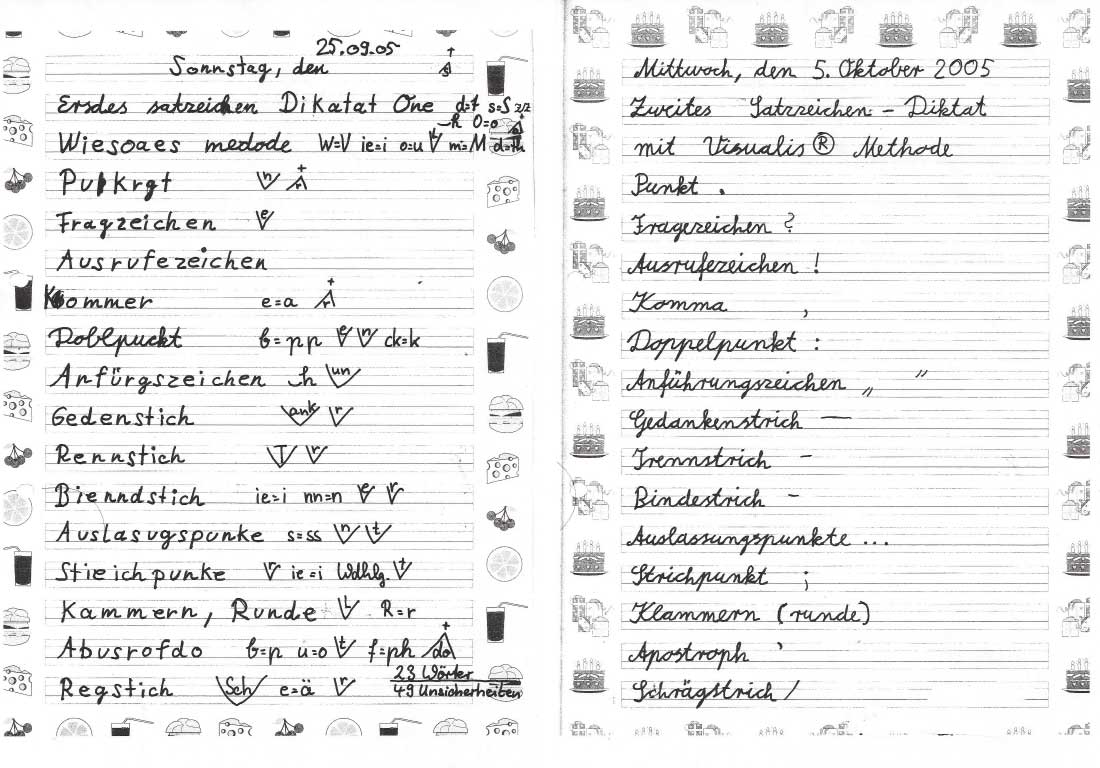 25.09.05
Sonnstag, den
Ersdes satzeichen Dikatat One d=t s=S z/z
Wiesoaes medode W=V ie=i o=u t m=M d=th
h O=o
Pukrgt n
Fragzeichen e
Ausrufezeichen
Kommer e=a r
Doblpuckt b=pp e n ck=k
Anfürgszeichen h un
Gedenstich ank r
Rennstich T r
Bienndstich ie=i nn=n e r
Auslasugspunke s=ss n t
Stieichpunke r ie=i Wdhlg. t
Kammern, Runde l R=r
Abusrofdo b=p u=o t f=ph do
Regstich Sch e=ä r
23 Wörter
49 Unsicherheiten
Mittwoch, den 5. Oktober 2005
Zweites Satzzeichen - Diktat
mit Visualis® Methode
Punkt .
Fragezeichen ?
Ausrufezeichen !
Komma ,
Doppelpunkt :
Anführungszeichen „ "
Gedankenstrich —
Trennstrich -
Bindestrich -
Auslassungspunkte ...
Strichpunkt ;
Klammern (runde)
Apostroph '
Schrägstrich /